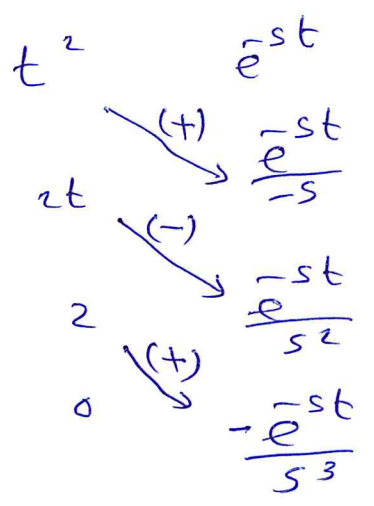 t² e^{-st}
(+) e^{-st}/-s
2t (-)
e^{-st}/s²
2 (+)
0 -e^{-st}/s³